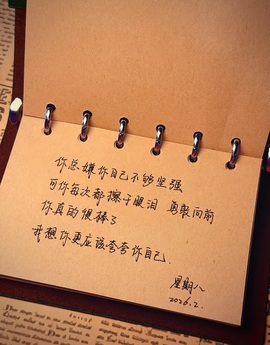 你总嫌你自己不够坚强
可你每次都擦干眼泪 勇敢向前
你真的很棒了
我想你更应该夸夸你自己.
星期八
2026.2.